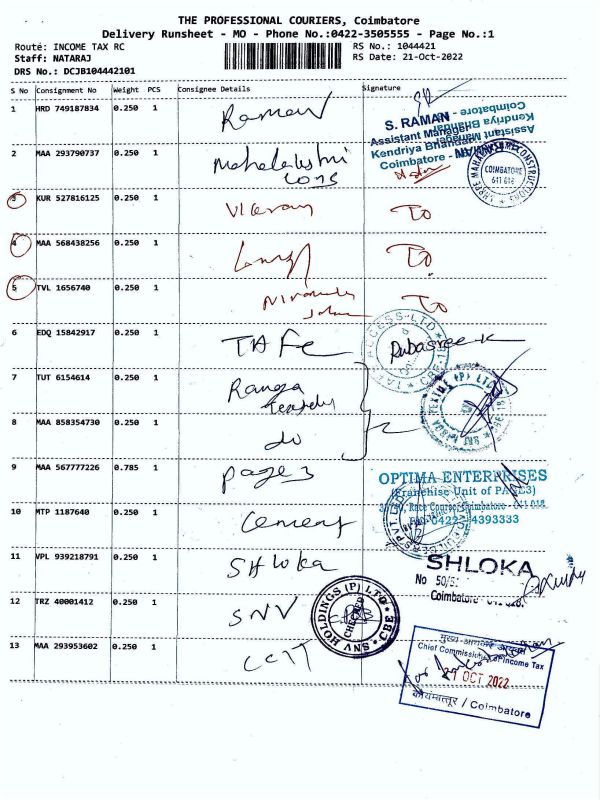 THE PROFESSIONAL COURIERS, Coimbatore
Delivery Runsheet - MO - Phone No.:0422-3505555 - Page No.:1
Route: INCOME TAX RC
RS No.: 1044421
Staff: NATARAJ
RS Date: 21-Oct-2022
DRS No.: DCJB104442101
S No Consignment No Weight PCS Consignee Details Signature
1 HRD 749187834 0.250 1 Raman
S. RAMAN
Assistant Manager
Kendriya Bhandar
Coimbatore -
2 MAA 293790737 0.250 1 Mahalakshmi
Cons
COIMBATORE
641 018
3 KUR 527816125 0.250 1 Vikram To
4 MAA 568438256 0.250 1 To
5 TVL 1656740 0.250 1 To
6 EDQ 15842917 0.250 1 TAFe
TAX ACCESS LTD
7 TUT 6154614 0.250 1 Ranga
8 MAA 858354730 0.250 1 do
9 MAA 567777226 0.785 1 page 3
OPTIMA ENTERPRISES
(Franchise Unit of PAGE3)
Race Course, Coimbatore - 641 018
0422-4393333
10 MTP 1187640 0.250 1 Cement
11 VPL 939218791 0.250 1 SHloka
SHLOKA
No 50/5
Coimbatore
12 TRZ 40001412 0.250 1 SNV
SNV HOLDINGS (P) LTD CBE
CHECKED
13 MAA 293953602 0.250 1 CCIT
मुख्य आयकर आयुक्त
Chief Commissioner of Income Tax
21 OCT 2022
कोयम्बत्तूर / Coimbatore